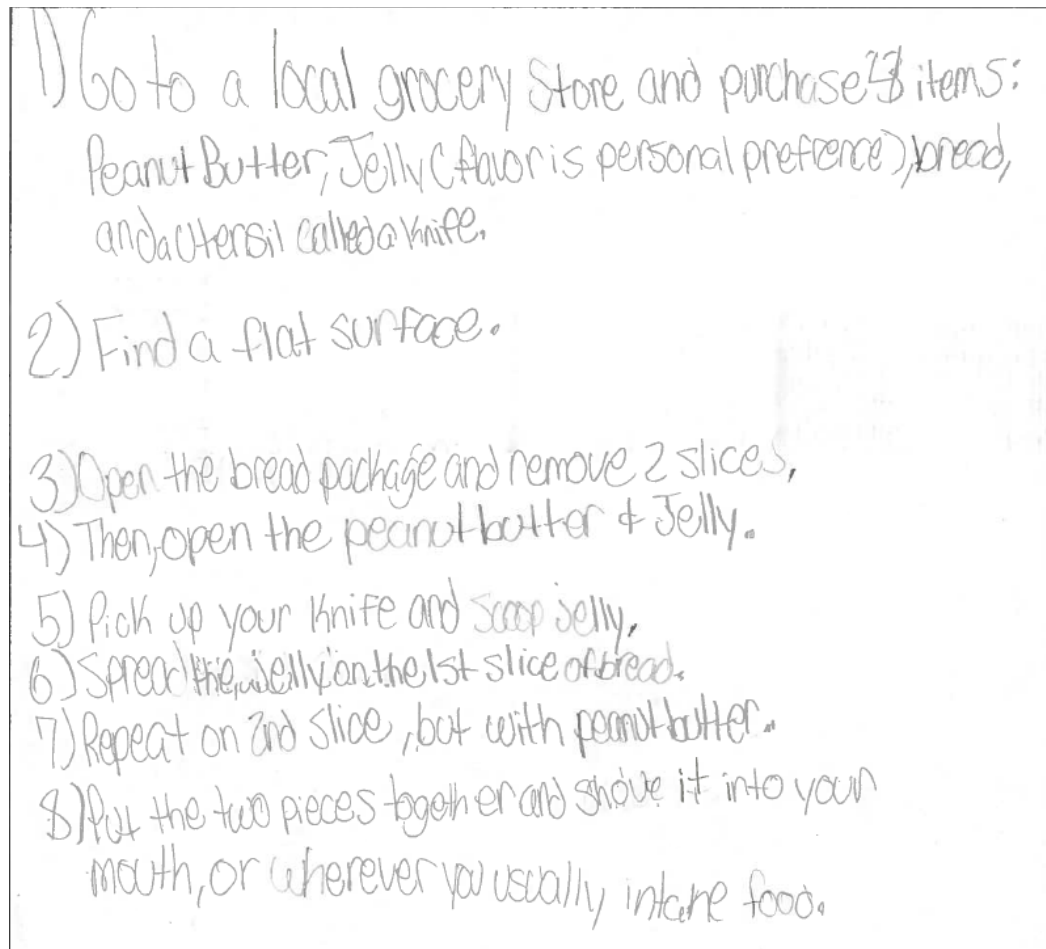 1) Go to a local grocery store and purchase 4 items:
Peanut Butter, Jelly (flavor is personal prefrence), bread,
and a utensil called a knife.
2) Find a flat surface.
3) Open the bread package and remove 2 slices.
4) Then, open the peanut butter & Jelly.
5) Pick up your knife and scoop jelly.
6) Spread the jelly on the 1st slice of bread.
7) Repeat on 2nd slice, but with peanut butter.
8) Put the two pieces together and shove it into your
mouth, or wherever you usually intake food.